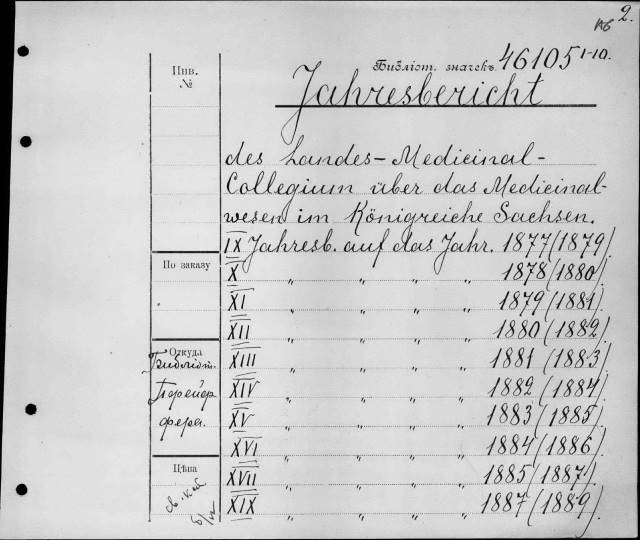 2.
Инв.
№
Библіот. значекъ 46105 1-10.
Jahresbericht
des Landes-Medicinal-
Collegium über das Medicinal-
wesen im Königreiche Sachsen.
IX Jahresb. auf das Jahr. 1877 (1879).
По заказу
X " " " " 1878 (1880).
XI " " " " 1879 (1881).
XII " " " " 1880 (1882).
Откуда
Библіот.
XIII " " " " 1881 (1883).
XIV " " " " 1882 (1884).
XV " " " " 1883 (1885).
XVI " " " " 1884 (1886).
Цѣна
XVII " " " " 1885 (1887).
XIX " " " " 1887 (1889).